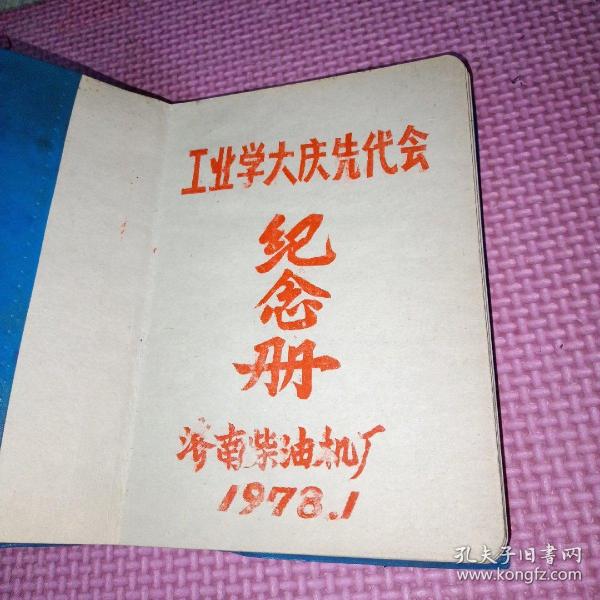 工业学大庆先代会
纪念册
济南柴油机厂
1978.1
孔夫子旧书网
www.kongfz.com